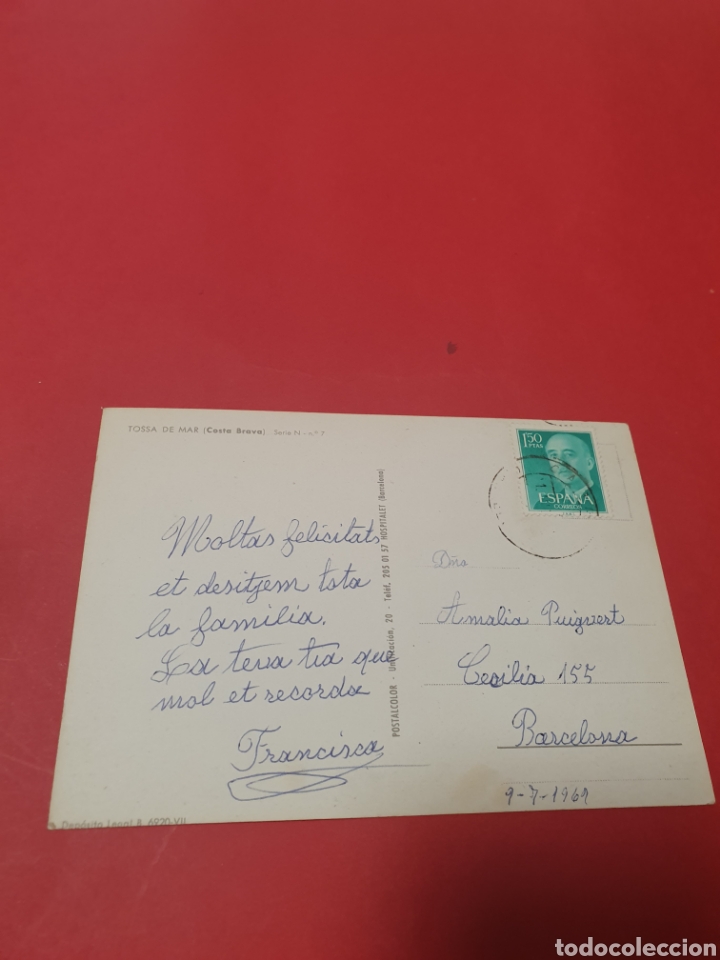 TOSSA DE MAR (Costa Brava) Serie N - n.º 7
Moltas felicitats
et desitjem tota
la familia.
La teva tia que
mol et recorda
Francisca
POSTALCOLOR - Unificación, 20 - Teléf. 205 01 57 HOSPITALET (Barcelona)
1'50
PTAS
ESPAÑA
CORREOS
Dña
Amalia Puigvert
Cecilia 155
Barcelona
9-7-1969
Depósito Legal B. 6920-VII
todocoleccion